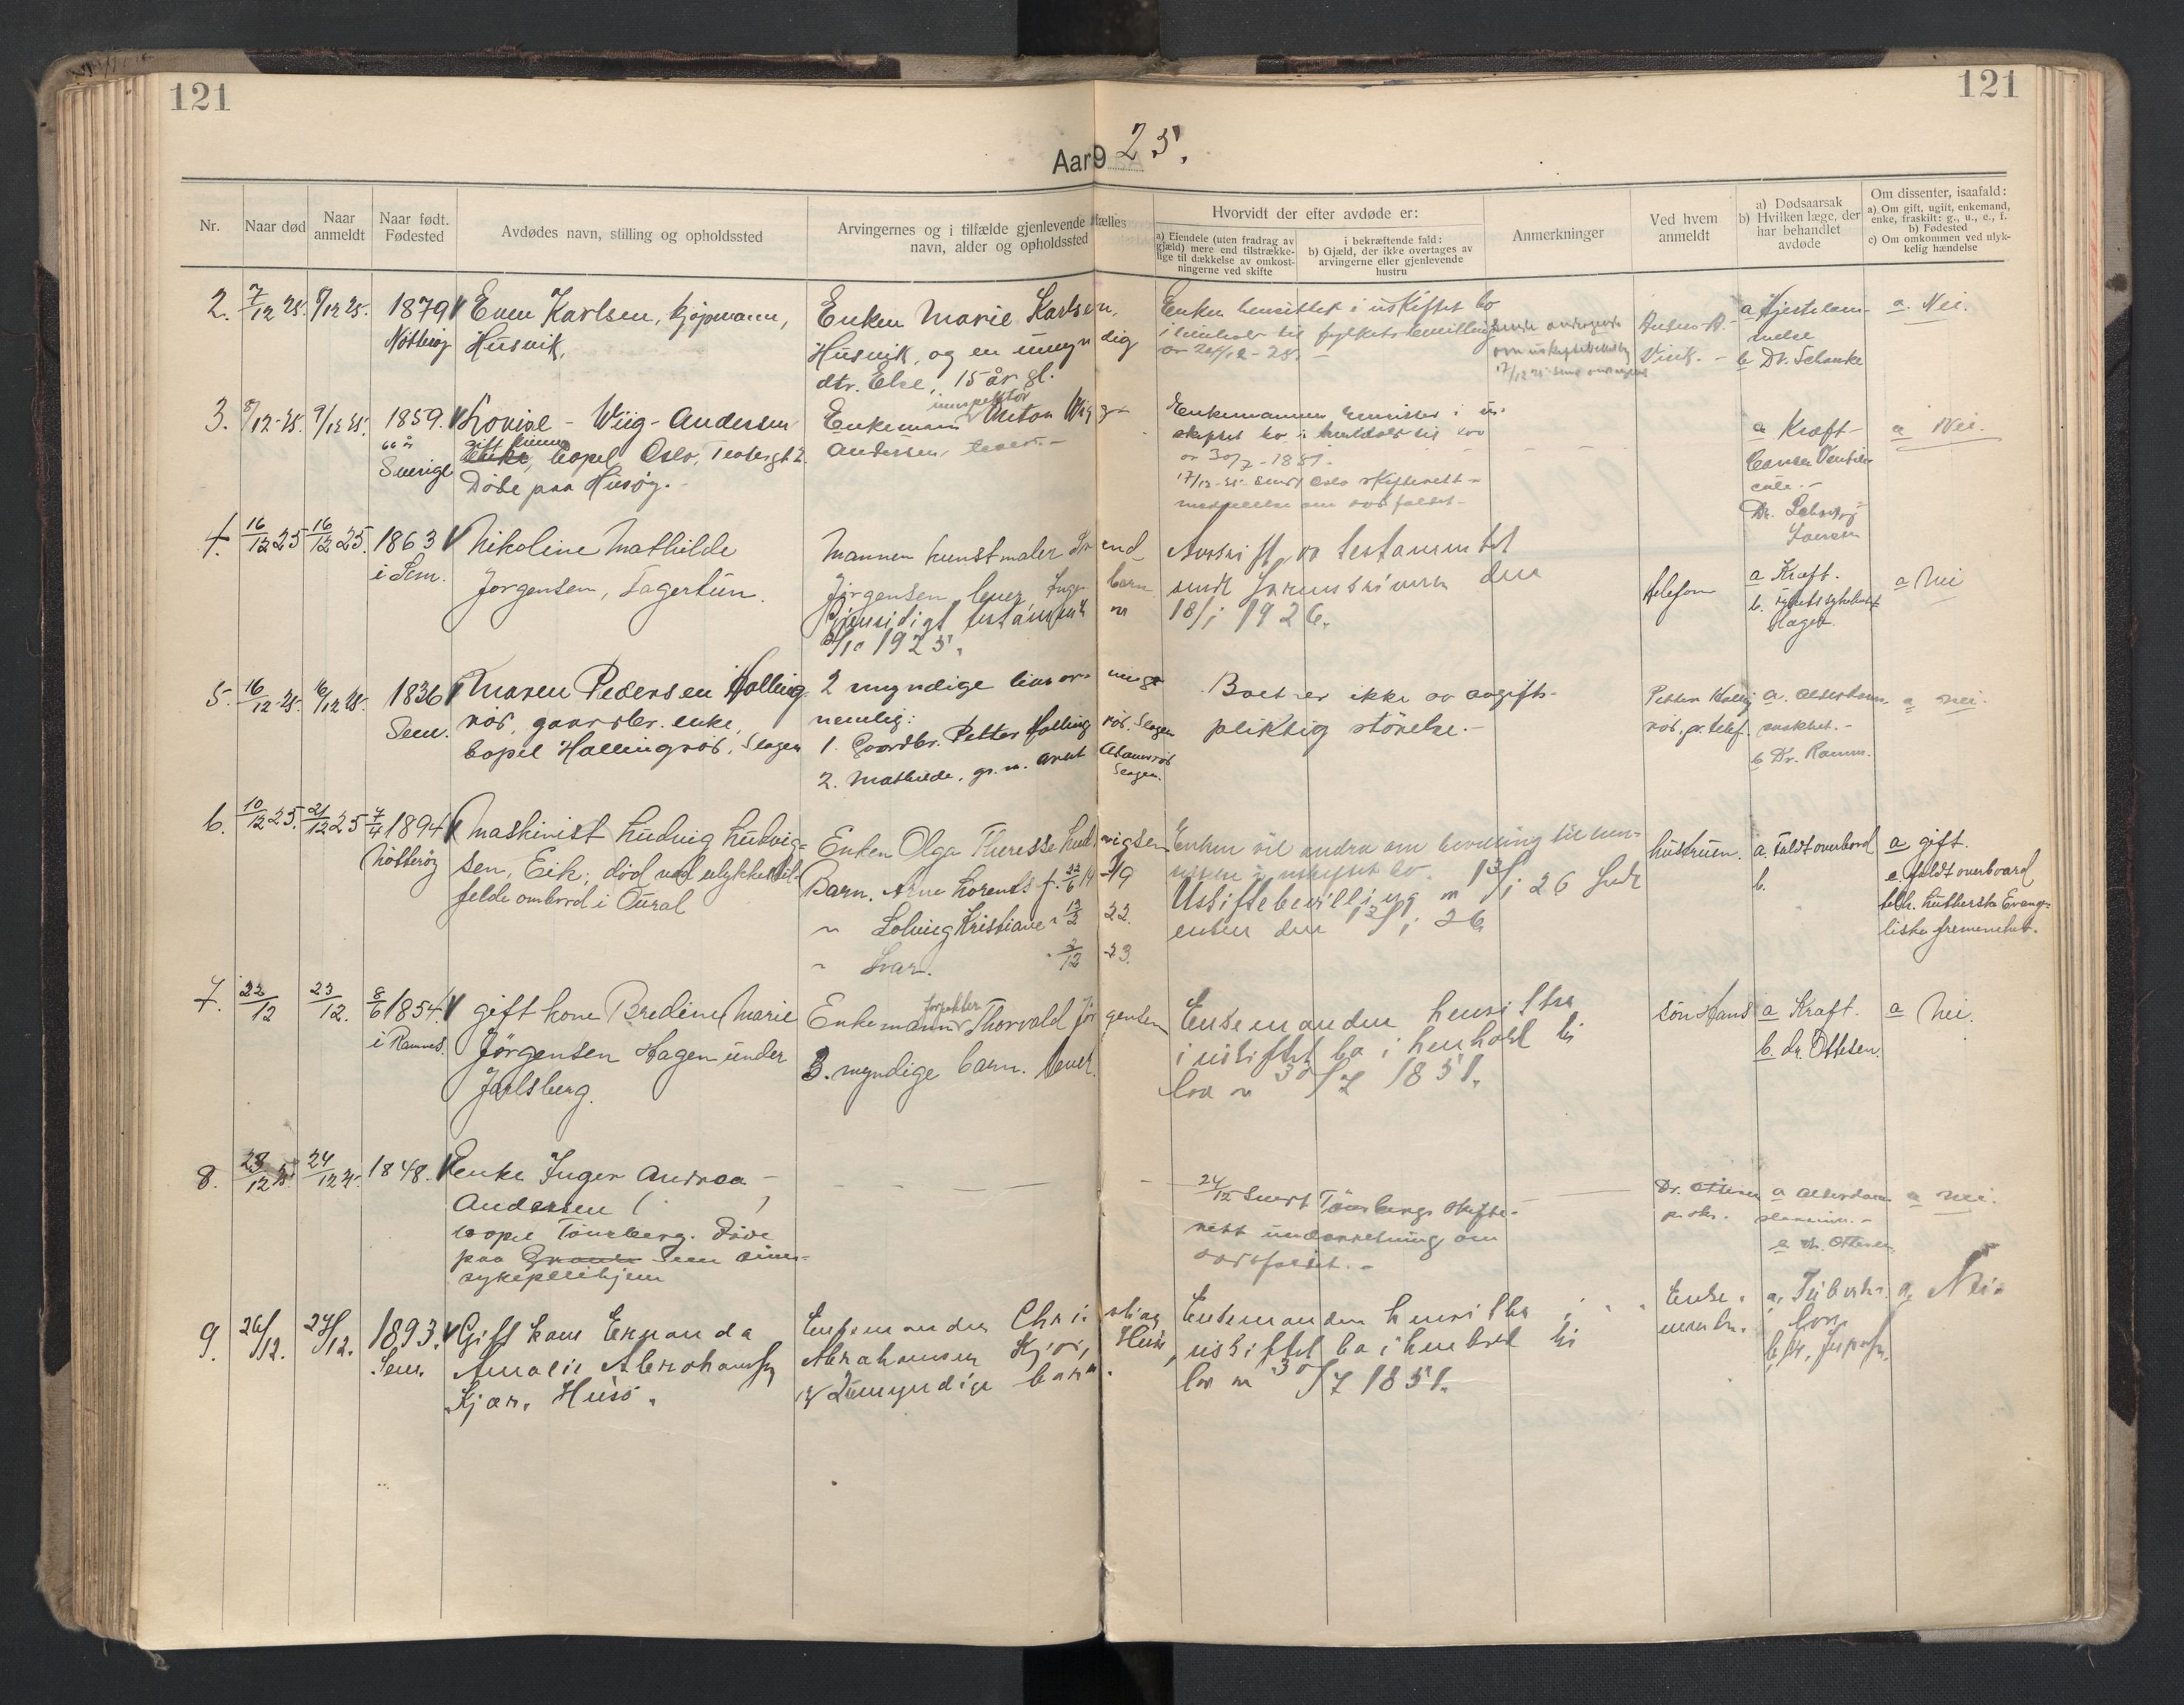 121
121
Aar 9 25.
Nr.
Naar død
Naar anmeldt
Naar født. Fødested
Avdødes navn, stilling og opholdssted
Arvingernes og i tilfælde gjenlevende fælles
navn, alder og opholdssted
Hvorvidt der efter avdøde er:
a) Eiendele (uten fradrag av gjæld) mere end tilstrækkelige til dækkelse av omkostningerne ved skifte
i bekræftende fald:
b) Gjæld, der ikke overtages av arvingerne eller gjenlevende hustru
Anmerkninger
Ved hvem anmeldt
a) Dødsaarsak
b) Hvilken læge, der har behandlet avdøde
Om dissenter, isaafald:
a) Om gift, ugift, enkemand, enke, fraskilt: g., u., e., f.
b) Fødested
c) Om omkommen ved ulykkelig hændelse
2. 7/12 25. 8/12 25. 1879 Even Karlsen, kjøpmann,
Nøtterøy Husvik.
Enken Marie Karlsen,
Husvik, og en umyndig
dtr. Else, 15 år gl.
Enken hensitter i uskiftet bo
i henhold til fylkets bevilling
av
a Hjertelam-
melse
b Dr. Schanke
a. Nei.
3. 8/12-25. 9/12 25. 1859. Lovise Wiig-Andersen
66 år gift kvinne
Sverige Enke, bopel Oslo,
Døde paa Husøy.
inspektør
Enkemann Anton Wiig-
Andersen, lever.
Enkemannen hensitter i u-
skiftet bo i henhold til lov
av 30/7-1851.
17/12-25. Sendt Oslo skifterett
meddelelse om dødsfaldet
a Kræft-
Cancer Ventri-
culi.
Dr.
a Nei.
4. 16/12 25 16/12 25. 1863 Nikoline Mathilde
i Sem. Jørgensen, Fagertun.
Mannen kunstmaler Svend
Jørgensen lever Ingen barn
Gjensidigt testament av
/10 1925.
Avskrift av testamentet
sendt Sorenskriveren den
18/1 1926.
telefon
a Kræft.
b. fylkets sykehus
Hagen
a Nei
5. 16/12-25. 16/12 25. 1836 Maren Pedersen Halling-
Sem. rød, gaardbr. enke,
bopel Hallingrød, Slagen
2 myndige livsarvinger
nemlig:
1. Gaardbr. Petter Hallingrød, Slagen
2. Mathilde, g. m. Arnt Adamsrød
Slagen.
Boet er ikke av avgifts-
pliktig størelse.-
Petter Halling
rød, pr. telef.
a. Alderdoms-
svakhet.-
b Dr. Ramm.
a nei.
6. 10/12 25. 21/12 25 7/4 1894 Maskinist Ludvig Ludvig-
Nøtterøy sen, Eik, død ved ulykkestil-
felde ombord i Ural
Enken Olga Theresse Ludvigsen
Barn. Arne Lorents f. 22/6 19 -19
" Solveig Kristiane " 12/2 22.
" Ivar. " 2/12 -23.
Enken vil andra om bevilling til hen-
sidden i uskiftet bo.
Uskiftebevilling av 13/1 26 sendt
enken den 13/1 26
hustruen.
a. Faldt overbord
b.
a gift.
c. faldt overboard
tilh. Lutherske Evange-
liske frimenihet.
7. 22/12 23/12. 8/6 1854. gift kone Bredine Marie
i Ramnes. Jørgensen Hagen under
Jarlsberg.
forpakter
Enkemann Thorvald Jørgensen
3. myndige barn. lever.
Enkemanden hensitter
i uskiftet bo i henhold til
lov av 30/7 1851.
søn Hans
a Kræft.
b. dr. Ottesen.
a Nei.
8. 23/12 25 24/12 25. 1848. enke Inger Andrea
Andersen ( )
bopel Tønsberg. Døde
paa Sem
sykepleihjem
24/12 Sendt Tønsberg skifte-
rett underretning om
dødsfaldet.-
Dr. Ottesen
pr. skr.
a Alderdoms
b dr. Ottesen
a nei.
9. 26/12. 27/12. 1893. Gift kone Ermanda
Sem. Amalie Abrahamsen
Kjær, Husø.
Enkemanden Christian
Abrahamsen Kjær, Husø,
og 2 umyndige barn.
Enkemanden hensitter i
uskiftet bo i henhold til
lov av 30/7 1851.
Enke-
manden.
a, Tuberku-
lose
a, Nei.